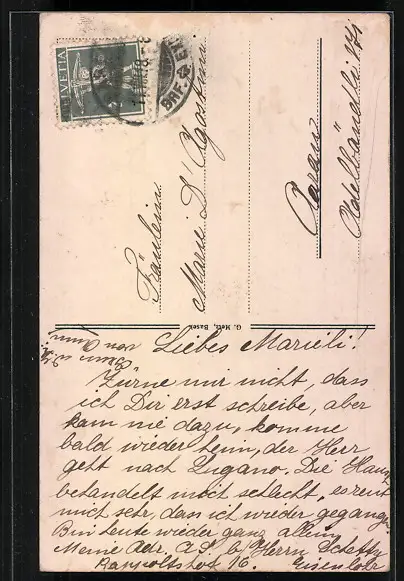 HELVETIA
BRF.
Fräulein
Marie D'Agostini
Aarau
Adelbändli
G. Metz, Basel
Liebes Marieli!
Zürne mir nicht, dass
ich Dir erst schreibe, aber
kam nie dazu, komme
bald wieder heim, der Herr
geht nach Lugano. Die
behandelt mich schlecht, es reut
mich sehr, dass ich wieder gegangen
Bin heute wieder ganz allein
Meine Adr. b. Herrn
Rappoltshof 16.